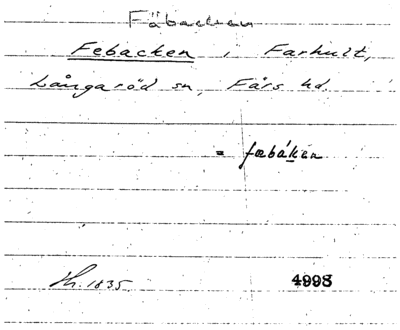 Fäbacken
Febacken, Farhult,
Långaröd sn, Färs hd.
= fæbáken
Sk. 1835. 4998